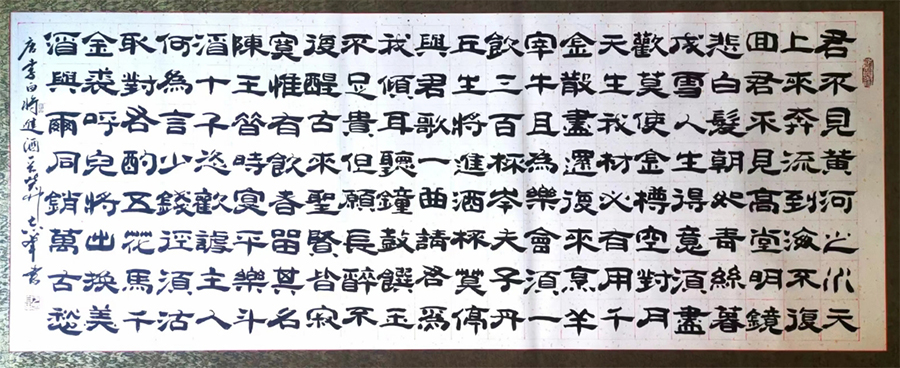 君不見黃河之水天
上來奔流到海不復
回君不見高堂明鏡
悲白髮朝如青絲暮
成雪人生得意須盡
歡莫使金樽空對月
天生我材必有用千
金散盡還復來烹羊
宰牛且為樂會須一
飲三百杯岑夫子丹
丘生將進酒杯莫停
與君歌一曲請君為
我傾耳聽鐘鼓饌玉
不足貴但願長醉不
復醒古來聖賢皆寂
寞惟有飲者留其名
陳王昔時宴平樂斗
酒十千恣歡謔主人
何為言少錢徑須沽
取對君酌五花馬千
金裘呼兒將出換美
酒與爾同銷萬古愁
唐李白將進酒 書